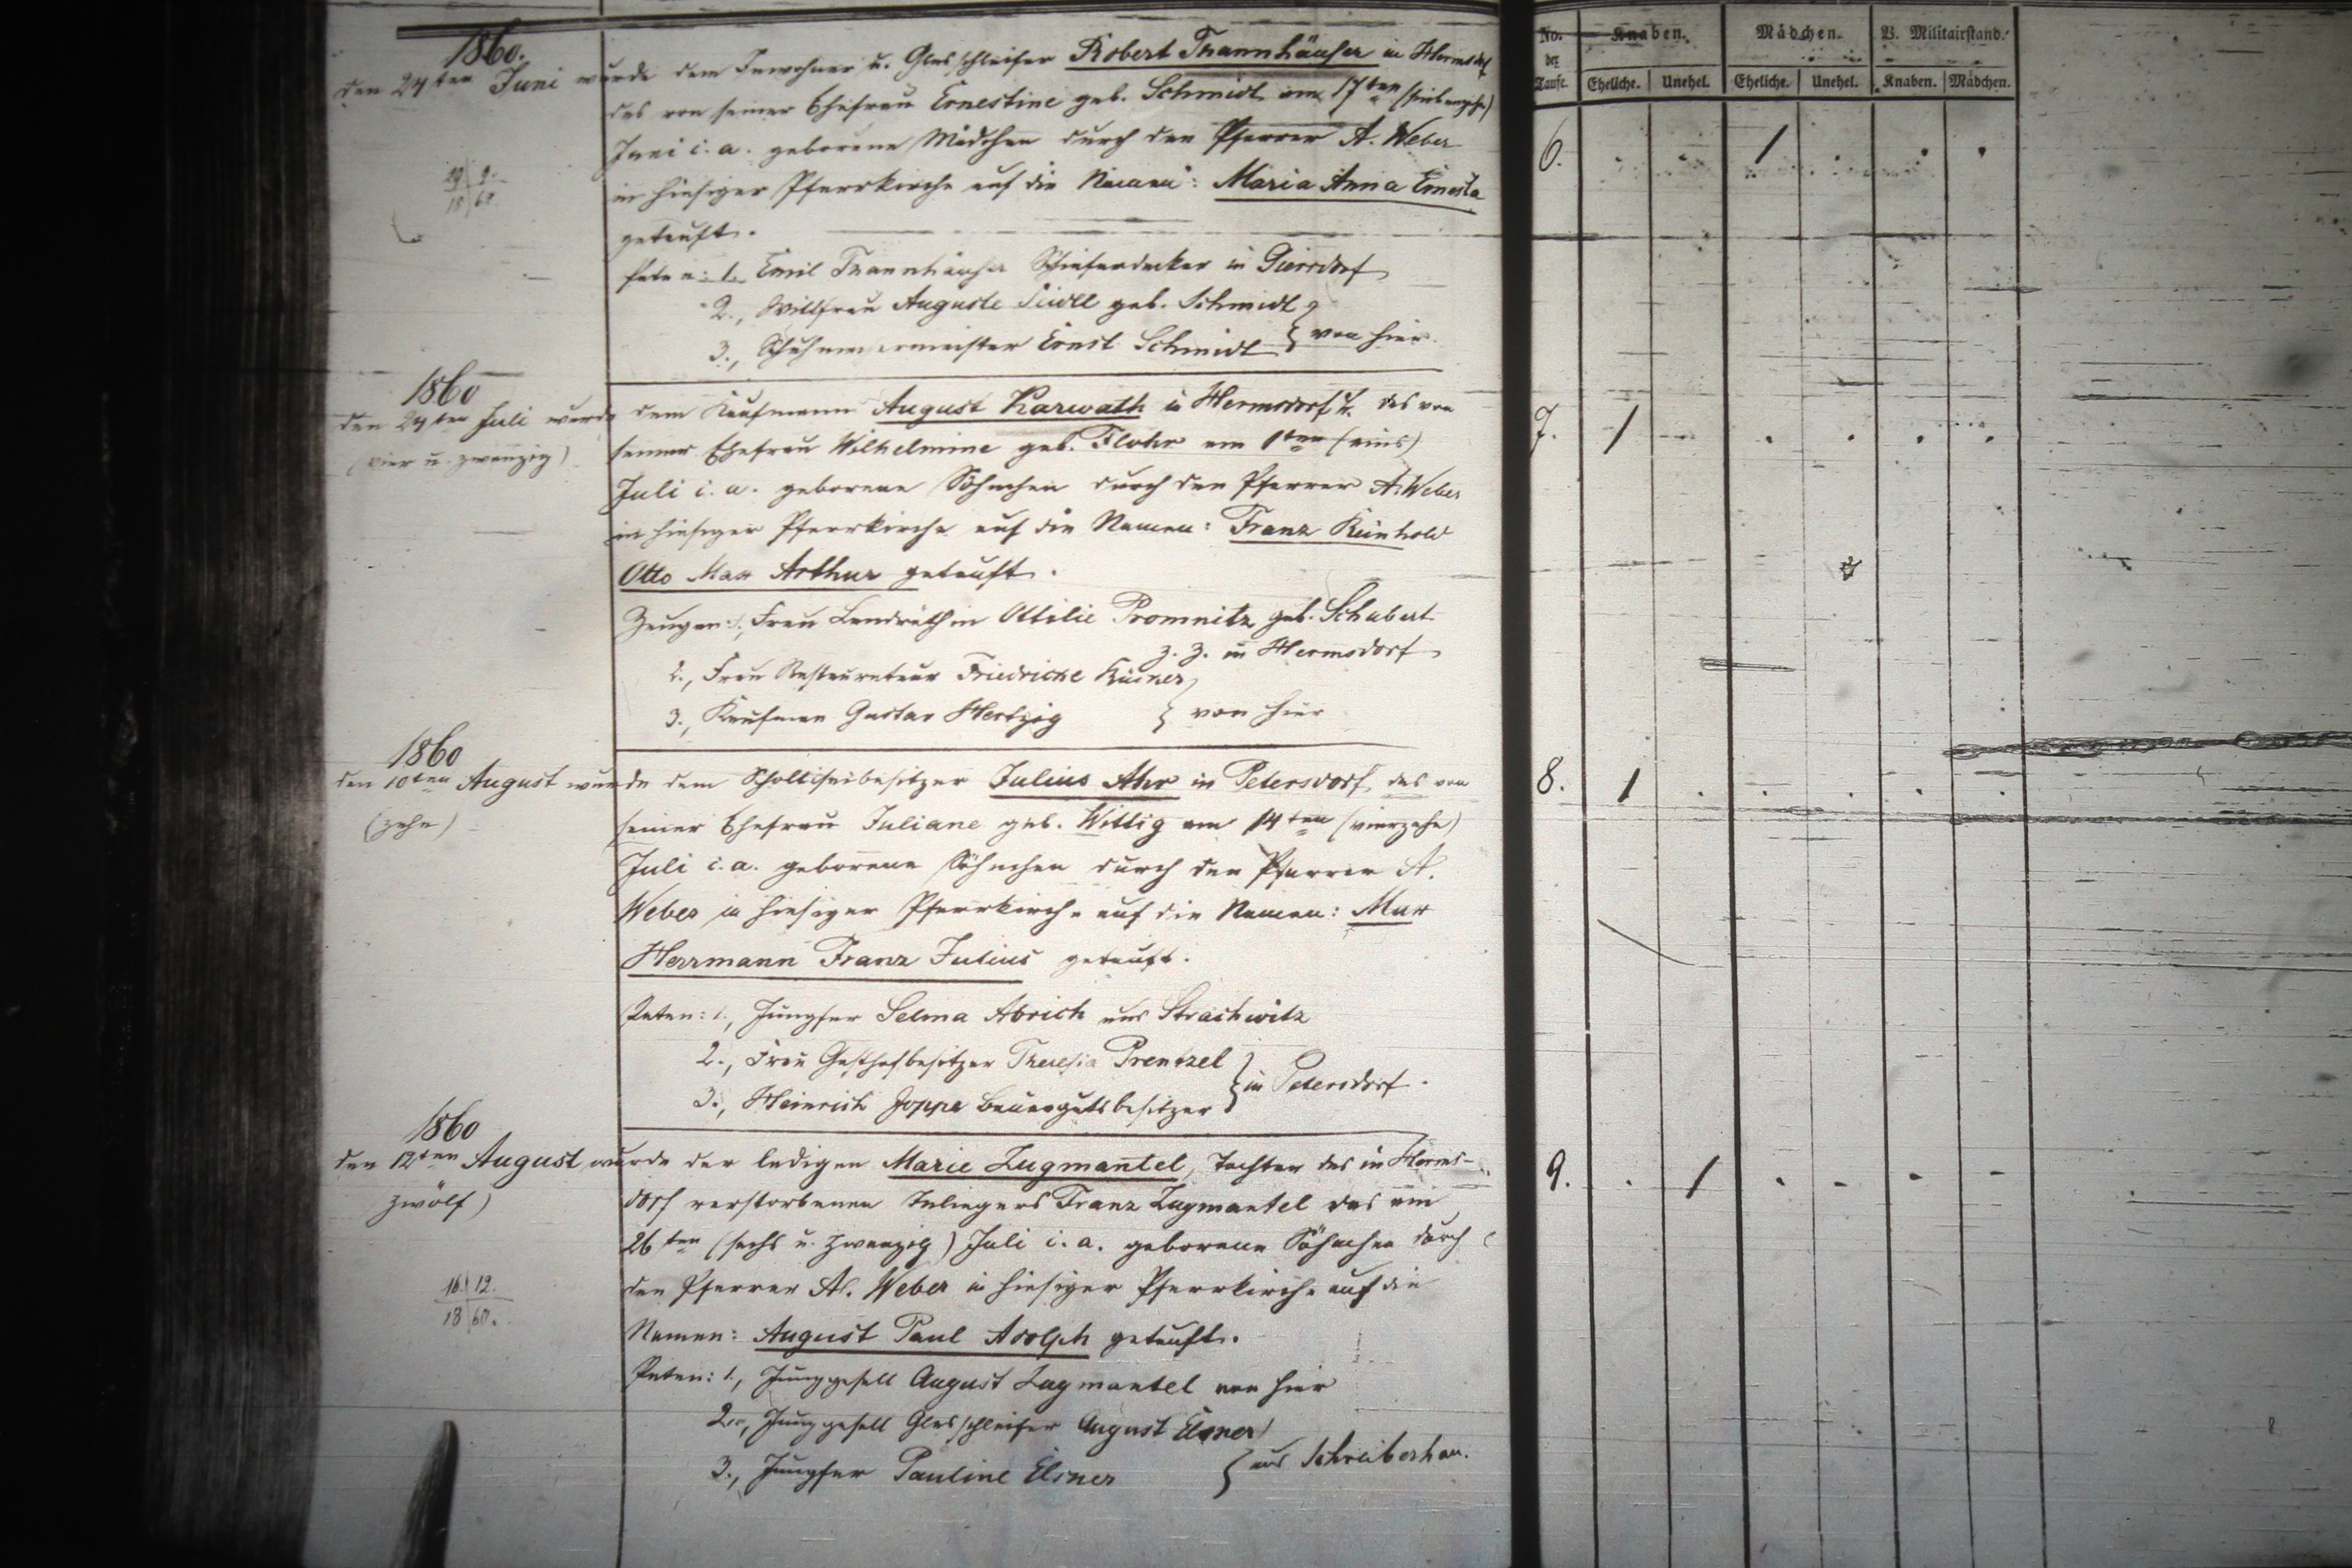 No. der Taufe. Knaben. Mädchen. B. Militairstand.
Eheliche. Unehel. Eheliche. Unehel. Knaben. Mädchen.
1860.
den 24ten Juni wurde dem Inwohner u. Glasschleifer Robert Thannhäuser in Hermsdf
das von seiner Ehefrau Ernestine geb. Schmidt am 17ten (siebenzehn)
Juni c. a. geborene Mädchen durch den Pfarrer A. Weber
in hiesiger Pfarrkirche auf die Namen: Maria Anna Ernesta
getauft.
Paten: 1. Emil Thannhäuser Schieferdecker in Giersdorf
2., Wittfrau Auguste geb. Schmidt
3., Ernst Schmidt } von hier.
6. 1
1860
den 24ten Juli wurde dem Kaufmann August Karwath in Hermsdorf u/K. das von
(vier u. zwanzig) seiner Ehefrau Wilhelmine geb. Flohr am 1ten (eins)
Juli c. a. geborene Söhnchen durch den Pfarrer A. Weber
in hiesiger Pfarrkirche auf die Namen: Franz Reinhold
Otto Max Arthur getauft.
Zeugen: 1., Frau Landräthin Ottilie Promnitz geb. Schubert
z. Z. in Hermsdorf
2., Frau Restaurateur Friedricke
3., Kaufmann Gustav Hertzig } von hier
7. 1
1860
den 10ten August wurde dem Scholtiseibesitzer Julius Ahr in Petersdorf, das von
(zehn) seiner Ehefrau Juliane geb. Wittig am 14ten (vierzehn)
Juli c. a. geborene Söhnchen durch den Pfarrer A.
Weber in hiesiger Pfarrkirche auf die Namen: Max
Herrmann Franz Julius getauft.
Paten: 1., Jungfer Selma Abrich aus Strachwitz
2., Frau Gasthofbesitzer Theresia Prentzel
3., Heinrich Joppe Bauergutsbesitzer } in Petersdorf.
8. 1
1860
den 12ten August wurde der ledigen Marie Zugmantel, Tochter des in Herms-
zwölf) dorf verstorbenen Inliegers Franz Zugmantel das am
26ten (sechs u. zwanzig) Juli c. a. geborene Söhnchen durch
den Pfarrer A. Weber in hiesiger Pfarrkirche auf die
16. 12.
18 60.
Namen: August Paul Adolph getauft.
Paten: 1., Junggesell August Zugmantel von hier
2., Junggesell Glasschleifer August Elsner
3., Jungfer Pauline Elsner } aus Schreiberhau.
9. 1